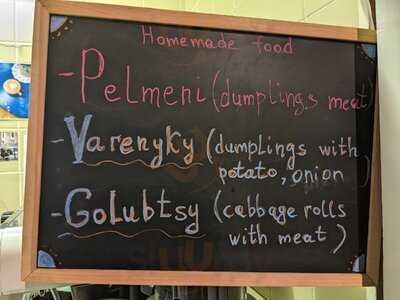 Homemade food
- Pelmeni (dumplings meat)
- Varenyky (dumplings with
potato, onion)
- Golubtsy (cabbage rolls
with meat)